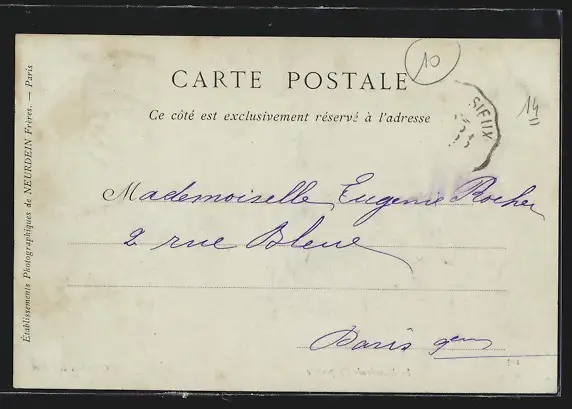 10
CARTE POSTALE
Ce côté est exclusivement réservé à l'adresse
SIEUX
14
Mademoiselle Eugenie Rocher
2 rue Bleue
Paris 9em
Établissements Photographiques de NEURDEIN Frères. — Paris